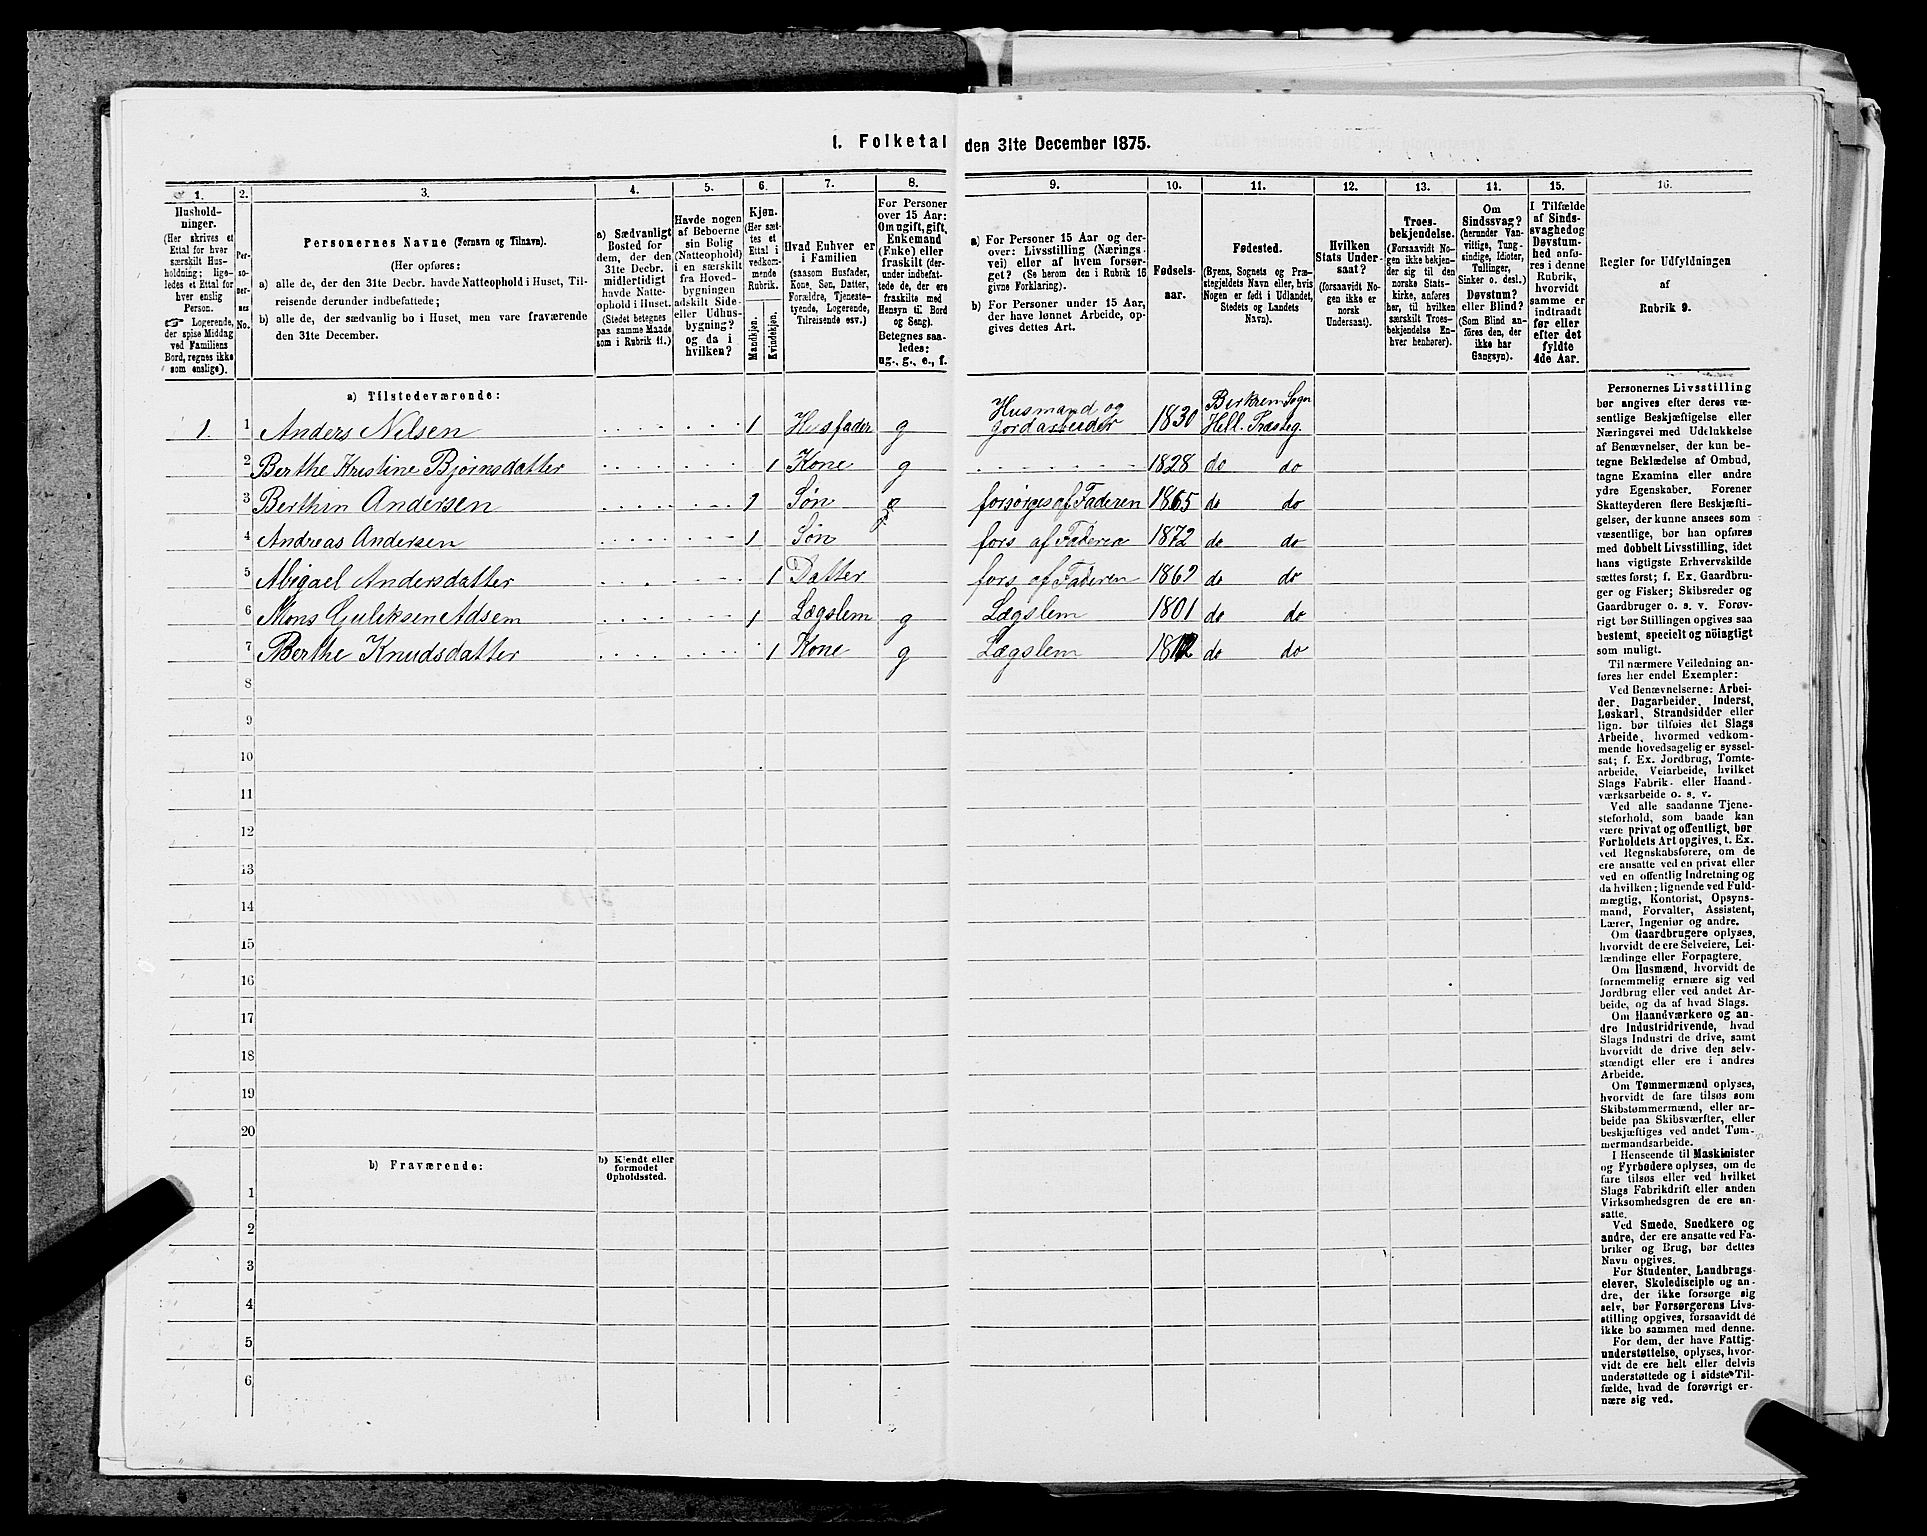 I. Folketal den 31te December 1875.
1. 2. 3. 4. 5. 6. 7. 8. 9. 10. 11. 12. 13. 14. 15. 16.
Hushold-
ninger.
(Her skrives et
Ettal for hver
særskilt Hus-
holdning; lige-
ledes et Ettal for
hver enslig
Person.
☞ Logerende,
der spise Middag
ved Familiens
Bord, regnes ikke
som enslige).
Per-
so-
ner-
nes
No.
Personernes Navne (Fornavn og Tilnavn).
(Her opføres:
a) alle de, der den 31te Decbr. havde Natteophold i Huset, Til-
reisende derunder indbefattede;
b) alle de, der sædvanlig bo i Huset, men vare fraværende
den 31te December.
a) Sædvanligt
Bosted for
dem, der den
31te Decbr.
midlertidigt
havde Natte-
ophold i Huset.
(Stedet betegnes
paa samme Maade
som i Rubrik 11.)
Havde nogen
af Beboerne
sin Bolig
(Natteophold)
i en særskilt
fra Hoved-
bygningen
adskilt Side-
eller Udhus-
bygning?
og da i
hvilken?
Kjøn.
(Her sæt-
tes et
Ettal i
vedkom-
mende
Rubrik.
Mandkjøn.
Kvindekjøn.
Hvad Enhver er
i Familien
(saasom Husfader,
Kone, Søn, Datter,
Forældre, Tjeneste-
tyende, Logerende,
Tilreisende osv.)
For Personer
over 15 Aar:
Om ugift, gift,
Enkemand
(Enke) eller
fraskilt (der-
under indbefat-
tede de, der ere
fraskilte med
Hensyn til Bord
og Seng).
Betegnes saa-
ledes:
ug., g., e., f.
a) For Personer 15 Aar og der-
over: Livsstilling (Nærings-
vei) eller af hvem forsør-
get? (Se herom den i Rubrik 16
givne Forklaring).
b) For Personer under 15 Aar,
der have lønnet Arbeide, op-
gives dettes Art.
Fødsels-
aar.
Fødested.
(Byens, Sognets og Præ-
stegjeldets Navn eller, hvis
Nogen er født i Udlandet,
Stedets og Landets
Navn).
Hvilken
Stats Under-
saat?
(forsaavidt No-
gen ikke er
norsk
Undersaat).
Troes-
bekjendelse.
(Forsaavidt No-
gen ikke bekjen-
der sig til den
norske Stats-
kirke, anføres
her, til hvilken
særskilt Troes-
bekjendelse En-
hver henhører).
Om
Sindssvag?
(herunder Van-
vittige, Tung-
sindige, Idioter,
Tullinger,
Sinker o. desl.)
Døvstum?
eller Blind?
(Som Blind an-
føres den, der
ikke har
Gangsyn).
I Tilfælde
af Sinds-
svaghed og
Døvstum-
hed anfø-
res i denne
Rubrik,
hvorvidt
samme er
indtraadt
før eller
efter det
fyldte
4de Aar.
Regler for Udfyldningen
af
Rubrik 9.
a) Tilstedeværende:
1 1 Anders Nilsen 1 Husfader g Husmand og Jordarbeider 1830 Berkrem Sogn Hell. Præsteg.
2 Berthe Kristine Bjørnsdatter 1 Kone g 1828 do do
3 Berthin Andersen 1 Søn forsørges af Faderen 1865 do do
4 Andreas Andersen 1 Søn fors af Faderen 1872 do do
5 Abigael Andersdatter 1 Datter fors af Faderen 1869 do do
6 Mons Guliksen Adsem 1 Lægslem g Lægslem 1801 do do
7 Berthe Knudsdatter 1 Kone g Lægslem 1812 do do
8
9
10
11
12
13
14
15
16
17
18
19
20
b) Fraværende:
b) Kjendt eller
formodet
Opholdssted.
1
2
3
4
5
6
Personernes Livsstilling
bør angives efter deres væ-
sentlige Beskjæftigelse eller
Næringsvei med Udelukkelse
af Benævnelser, der kun be-
tegne Beklædelse af Ombud,
tagne Examina eller andre
ydre Egenskaber. Forener
Skatteyderen flere Beskjæfti-
gelser, der kunne ansees som
væsentlige, bør han opføres
med dobbelt Livsstilling, idet
hans vigtigste Erhvervskilde
sættes først; f. Ex. Gaardbru-
ger og Fisker; Skibsreder og
Gaardbruger o. s. v. Forøv-
rigt bør Stillingen opgives saa
bestemt, specielt og nöiagtigt
som muligt.
Til nærmere Veiledning an-
føres her endel Exempler:
Ved Benævnelserne: Arbei-
der, Dagarbeider, Inderst,
Løskarl, Strandsidder eller
lign. bør tilføies det Slags
Arbeide, hvormed vedkom-
mende hovedsagelig er syssel-
sat; f. Ex. Jordbrug, Tomte-
arbeide, Veiarbeide, hvilket
Slags Fabrik- eller Haand-
værksarbeide o. s. v.
Ved alle saadanne Tjene-
steforhold, som baade kan
være privat og offentligt, bør
Forholdets Art opgives, t. Ex.
ved Regnskabsførere, om de
ere ansatte ved en privat eller
ved en offentlig Indretning og
da hvilken; lignende ved Fuld-
mægtig, Kontorist, Opsyns-
mand, Forvalter, Assistent,
Lærer, Ingeniør og andre.
Om Gaardbrugere oplyses,
hvorvidt de ere Selveiere, Lei-
lændinge eller Forpagtere.
Om Husmænd, hvorvidt de
fornemmelig ernære sig ved
Jordbrug eller ved andet Ar-
beide, og da af hvad Slags.
Om Haandværkere og an-
dre Industridrivende, hvad
Slags Industri de drive, samt
hvorvidt de drive den selv-
stændigt eller ere i andres
Arbeide.
Om Tømmermænd oplyses,
hvorvidt de fare tilsøs som
Skibstømmermænd, eller ar-
beide paa Skibsværfter, eller
beskjæftiges ved andet Tøm-
mermandsarbeide.
I Henseende til Maskinister
og Fyrbødere oplyses, om de
fare tilsøs eller ved hvilket
Slags Fabrikdrift eller anden
Virksomhedsgren de ere an-
satte.
Ved Smede, Snedkere og
andre, der ere ansatte ved Fa-
briker og Brug, bør dettes
Navn opgives.
For Studenter, Landbrugs-
elever, Skoledisciple og an-
dre, der ikke forsørge sig
selv, bør Forsørgerens Livs-
stilling opgives, forsaavidt de
ikke bo sammen med denne.
For dem, der have Fattig-
understøttelse, oplyses, hvor-
vidt de ere helt eller delvis
understøttede og i sidste Til-
fælde, hvad de forøvrigt er-
nære sig ved.